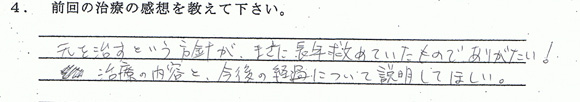 4. 前回の治療の感想を教えて下さい。
元を治すという方針が、まさに長年求めていたものでありがたい!
治療の内容と、今後の経過について説明してほしい。